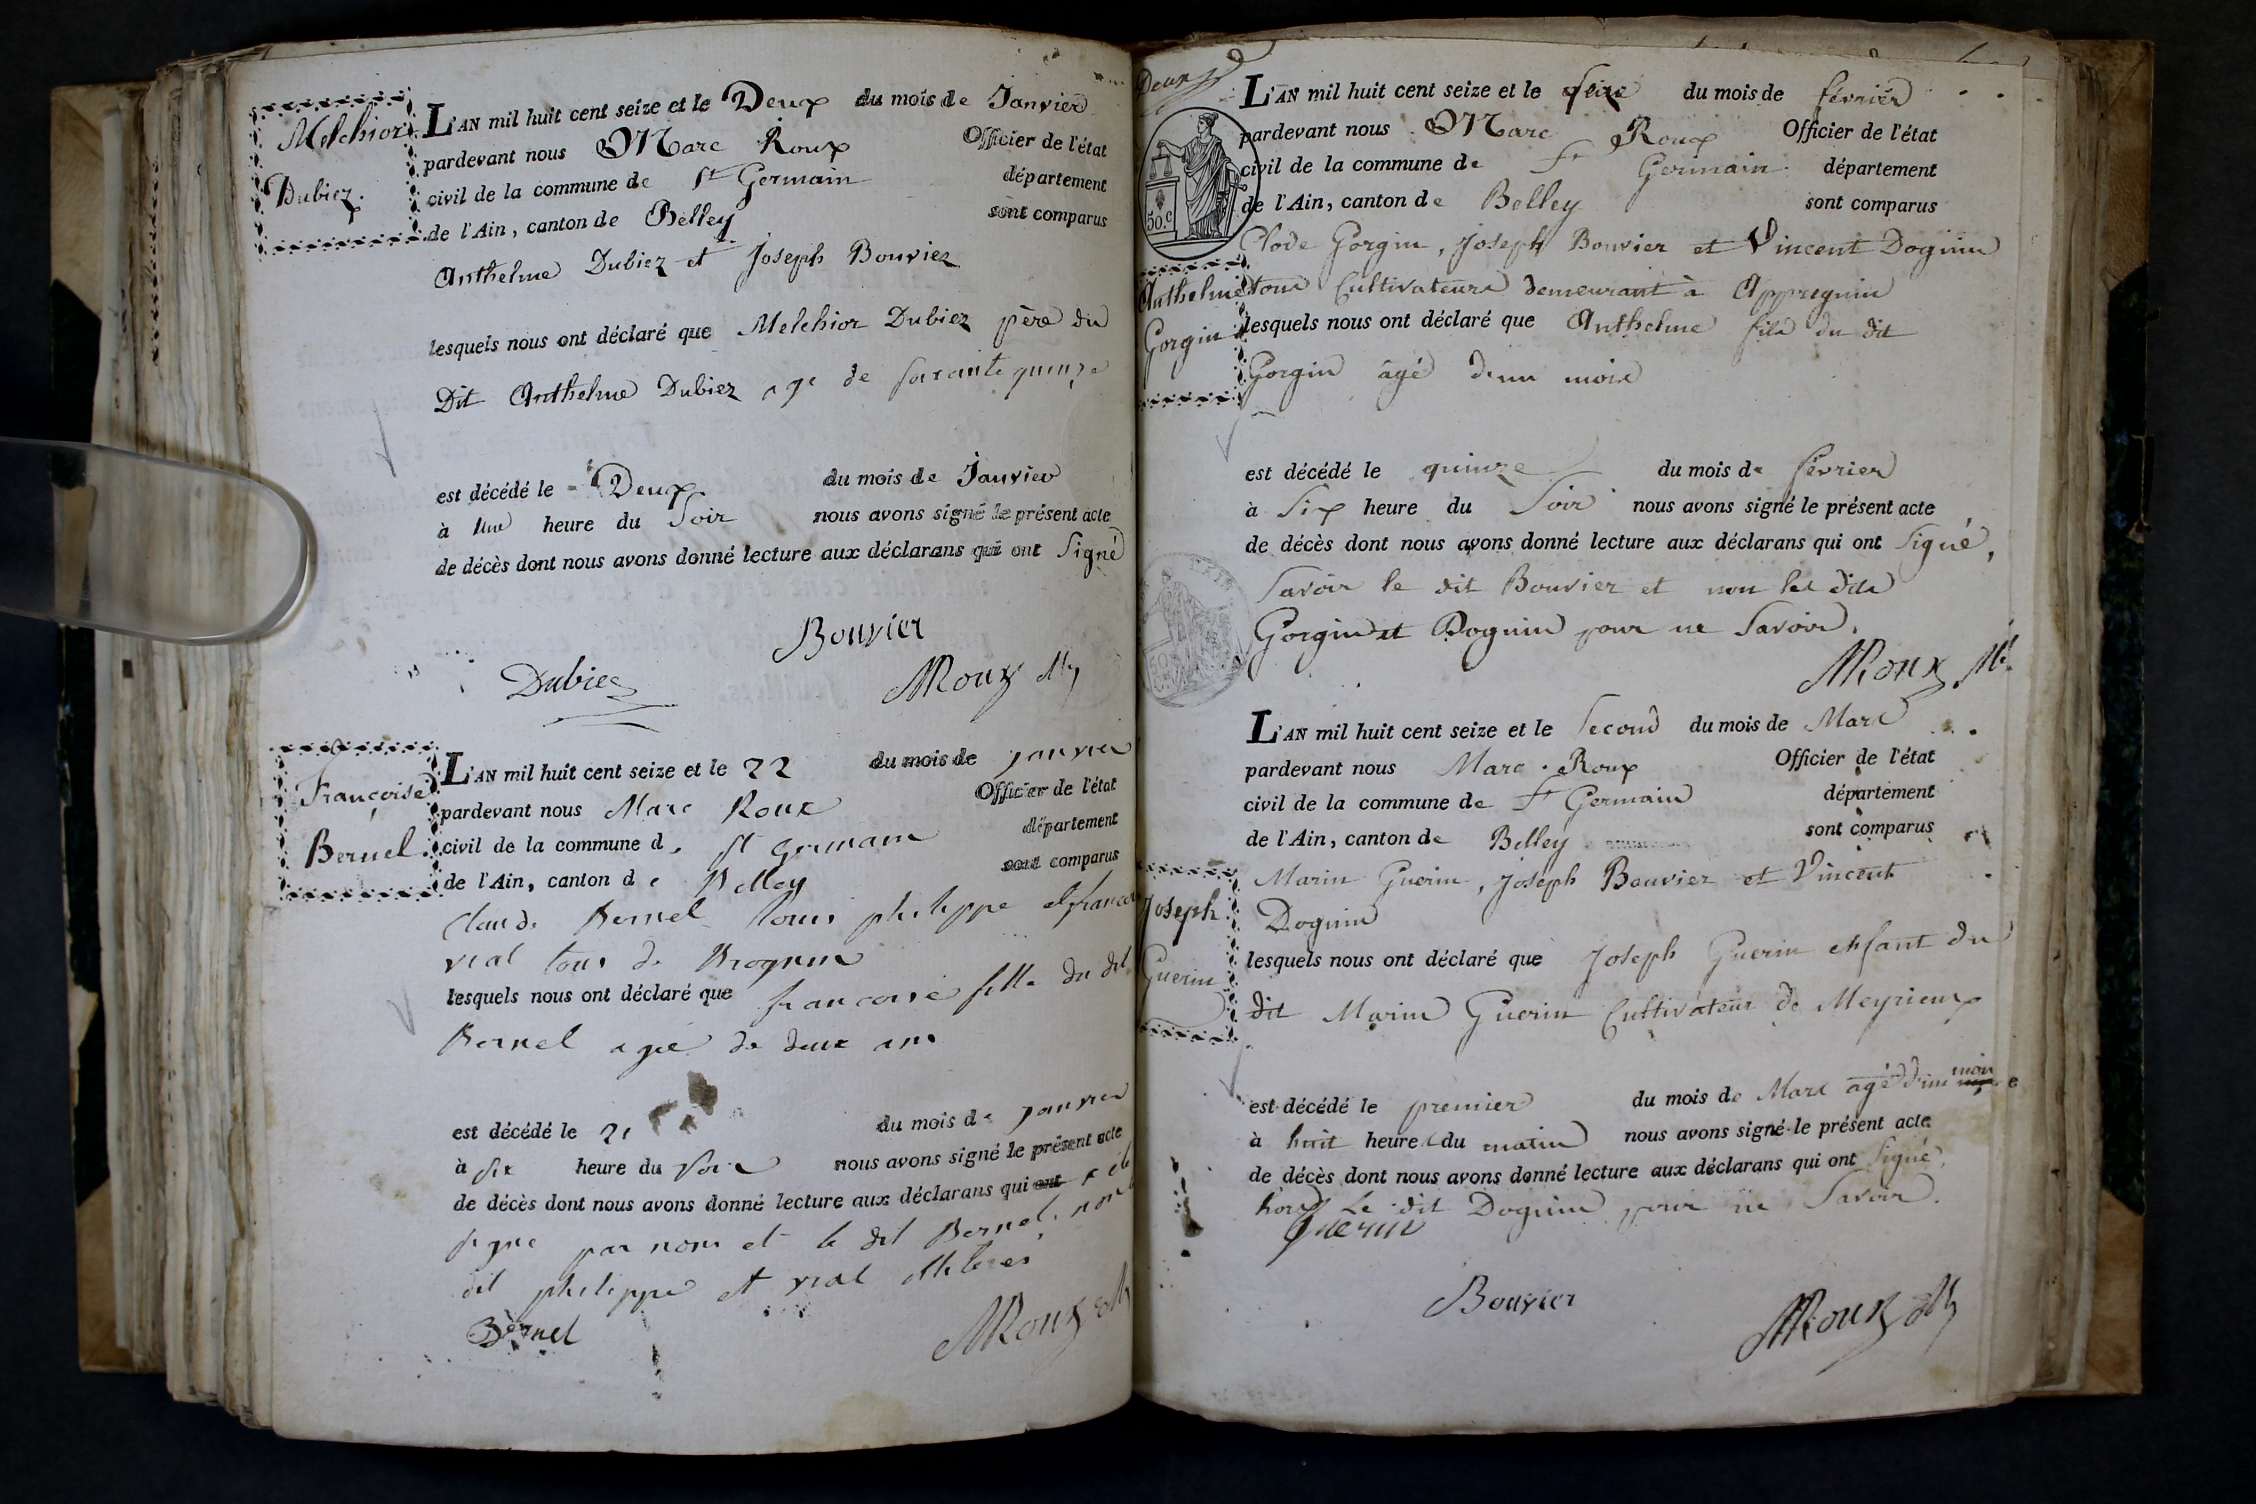 Melchior
Dubiez.
L'AN mil huit cent seize et le Deux du mois de Janvier
pardevant nous Marc Roux Officier de l'état
civil de la commune de St Germain département
de l'Ain, canton de Belley sont comparus
Anthelme Dubiez et Joseph Bouvier
lesquels nous ont déclaré que Melchior Dubiez père du
Dit Anthelme Dubiez age de soixante quinze
est décédé le Deux du mois de Janvier
à Une heure du Soir nous avons signé le présent acte
de décès dont nous avons donné lecture aux déclarans qui ont Signé
Bouvier
Dubiez
MRoux
Françoise
Bernel.
L'AN mil huit cent seize et le 22 du mois de janvier
pardevant nous Marc Roux Officier de l'état
civil de la commune de St germain département
de l'Ain, canton de Belley sont comparus
Claude Bernel louis philippe et francois
vial tous de Brognin
lesquels nous ont déclaré que francoise fille du dit
Bernel agée de deux ans
est décédé le 21 du mois de janvier
à six heure du soir nous avons signé le présent acte
de décès dont nous avons donné lecture aux déclarans qui ont
signé par nous et le dit Bernel. non
dit philippe et vial illiterés
Bernel
MRoux
Deux
50.c
Anthelme
Gorgin
L'AN mil huit cent seize et le seize du mois de février
pardevant nous Marc Roux Officier de l'état
civil de la commune de St Germain département
de l'Ain, canton de Belley sont comparus
Clode Gorgin, Joseph Bouvier et Vincent Doguin
tous Cultivateurs demeurant à Appregnin
lesquels nous ont déclaré que Anthelme fils du dit
Gorgin âgé d'un mois
est décédé le quinze du mois de février
à Six heure du Soir nous avons signé le présent acte
de décès dont nous avons donné lecture aux déclarans qui ont Signé,
Savoir le dit Bouvier et non les dits
Gorgin et Doguin pour ne Savoir.
MRoux
Joseph
Guerin
L'AN mil huit cent seize et le Second du mois de Mars
pardevant nous Marc Roux Officier de l'état
civil de la commune de St Germain département
de l'Ain, canton de Belley sont comparus
Marin Guerin, Joseph Bouvier et Vincent
Doguin
lesquels nous ont déclaré que Joseph Guerin enfant du
dit Marin Guerin Cultivateur de Meyrieux
est décédé le premier du mois de Mars agé d'un mois
à huit heure du matin nous avons signé le présent acte
de décès dont nous avons donné lecture aux déclarans qui ont Signé,
hors Le dit Doguin pour ne Savoir.
Guerin
Bouvier
MRoux